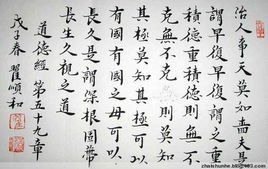 治人事天莫如嗇夫是
謂早復早復謂之重
積德重積德則無不
克無不克則莫知
其極莫知其極可以
有國有國之母可以
長久是謂深根固蒂
長生久視之道
道德經第五十九章
戊子春瞿順和